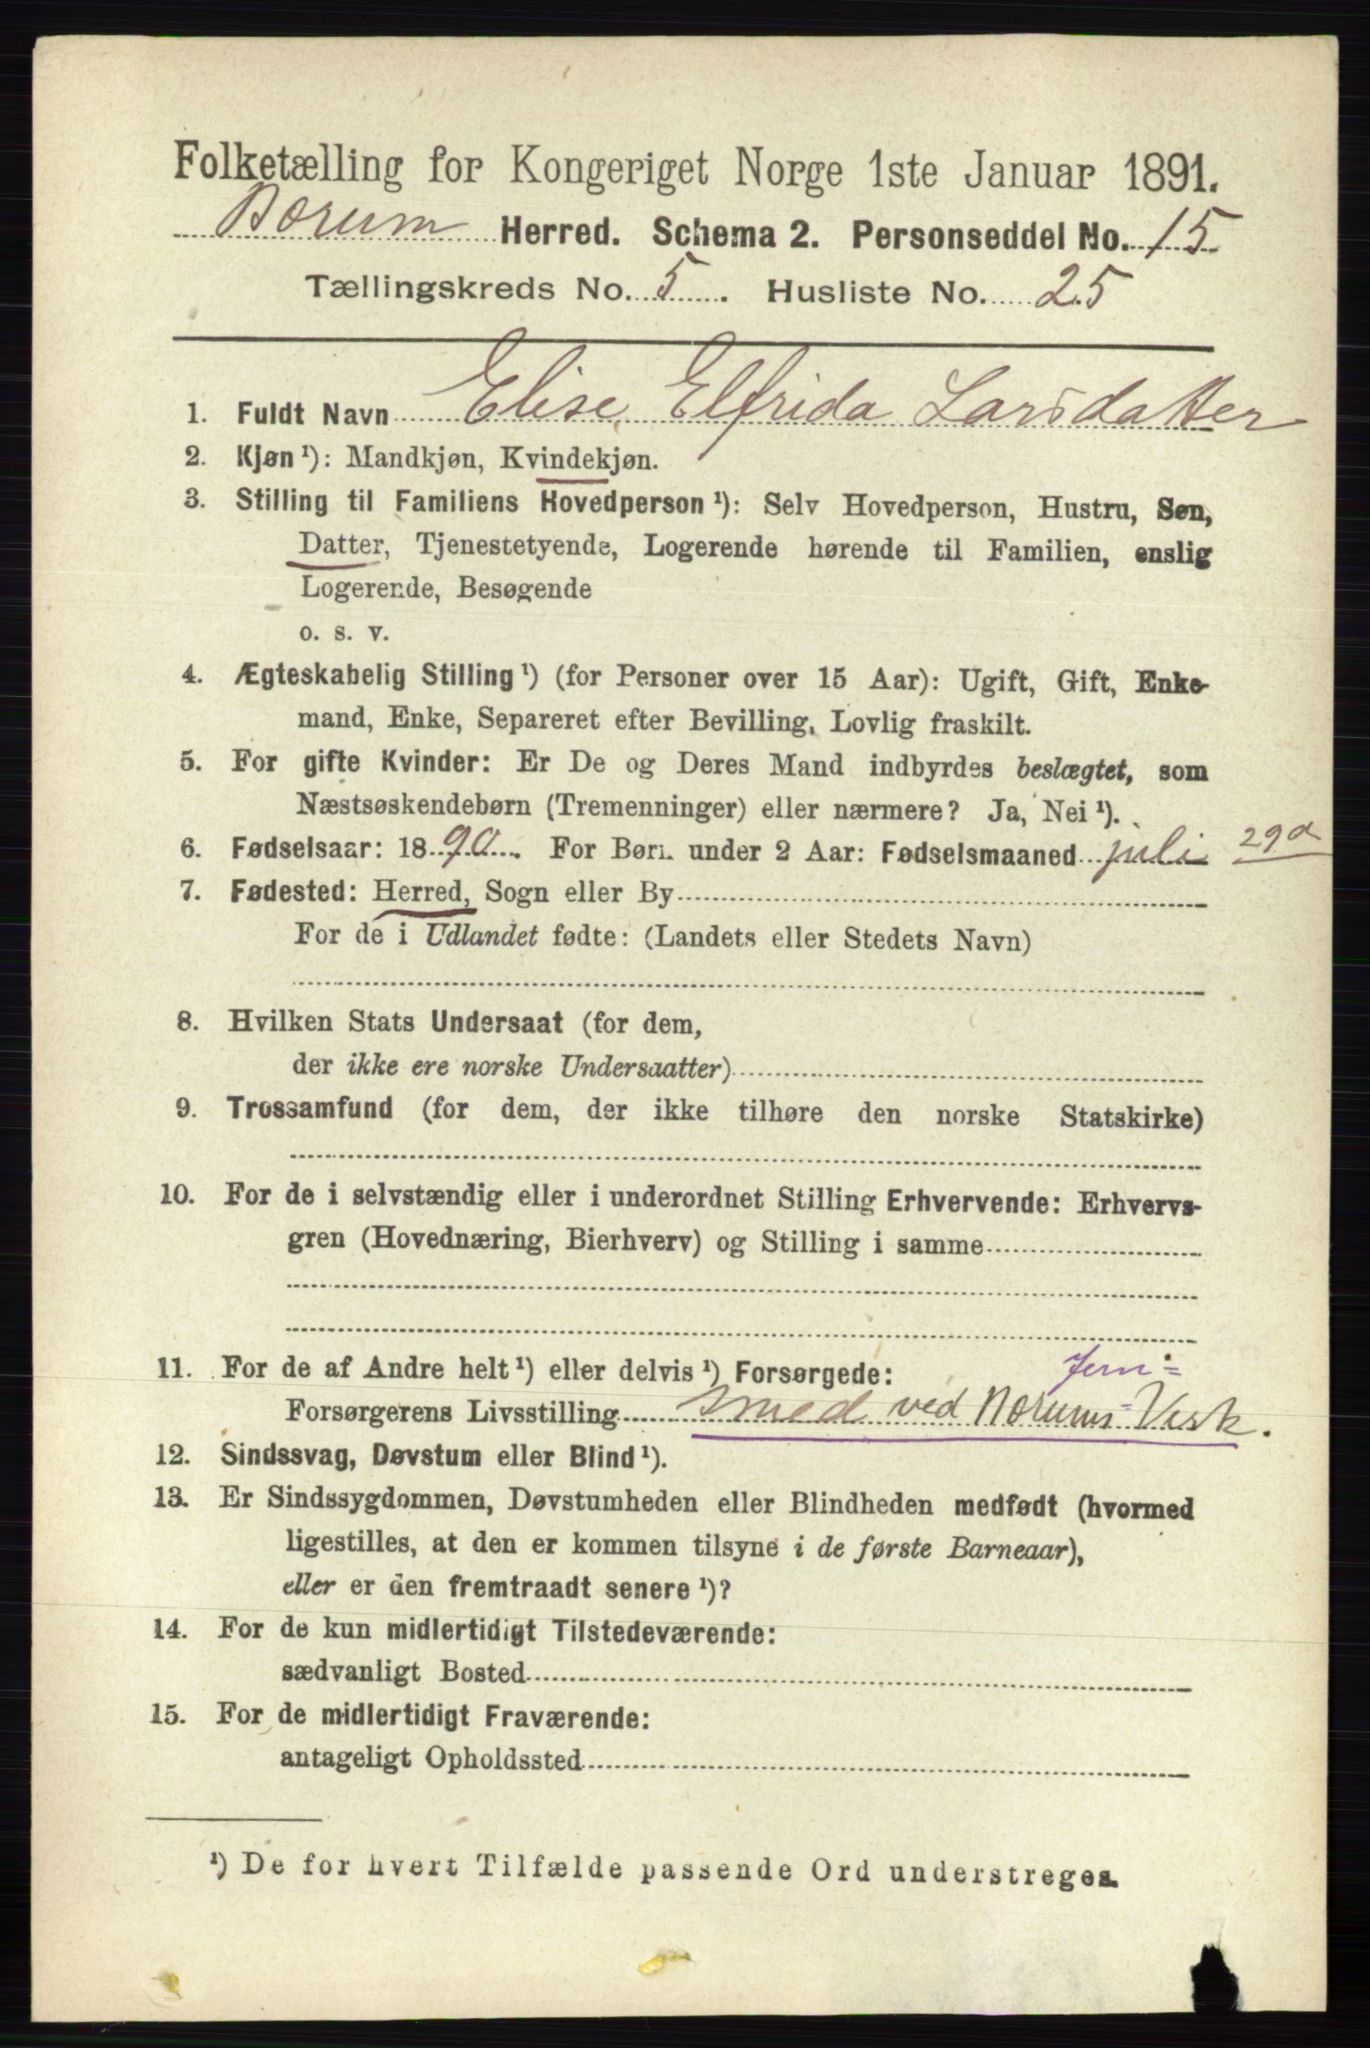 Folketælling for Kongeriget Norge 1ste Januar 1891.
Bærum Herred. Schema 2. Personseddel No. 15
Tællingskreds No. 5. Husliste No. 25
1. Fuldt Navn Elise Elfrida Larsdatter
2. Kjøn ¹): Mandkjøn, Kvindekjøn.
3. Stilling til Familiens Hovedperson ¹): Selv Hovedperson, Hustru, Søn,
Datter, Tjenestetyende, Logerende hørende til Familien, enslig
Logerende, Besøgende
o. s. v.
4. Ægteskabelig Stilling ¹) (for Personer over 15 Aar): Ugift, Gift, Enke-
mand, Enke, Separeret efter Bevilling, Lovlig fraskilt.
5. For gifte Kvinder: Er De og Deres Mand indbyrdes beslægtet, som
Næstsøskendebørn (Tremenninger) eller nærmere? Ja, Nei ¹).
6. Fødselsaar: 1890. For Børn under 2 Aar: Fødselsmaaned juli 29d
7. Fødested: Herred, Sogn eller By
For de i Udlandet fødte: (Landets eller Stedets Navn)
8. Hvilken Stats Undersaat (for dem,
der ikke ere norske Undersaatter)
9. Trossamfund (for dem, der ikke tilhøre den norske Statskirke)
10. For de i selvstændig eller i underordnet Stilling Erhvervende: Erhvervs-
gren (Hovednæring, Bierhverv) og Stilling i samme
11. For de af Andre helt ¹) eller delvis ¹) Forsørgede: Jern=
Forsørgerens Livsstilling smed ved Bærums=Verk.
12. Sindssvag, Døvstum eller Blind ¹).
13. Er Sindssygdommen, Døvstumheden eller Blindheden medfødt (hvormed
ligestilles, at den er kommen tilsyne i de første Barneaar),
eller er den fremtraadt senere ¹)?
14. For de kun midlertidigt Tilstedeværende:
sædvanligt Bosted
15. For de midlertidigt Fraværende:
antageligt Opholdssted
¹) De for hvert Tilfælde passende Ord understreges.